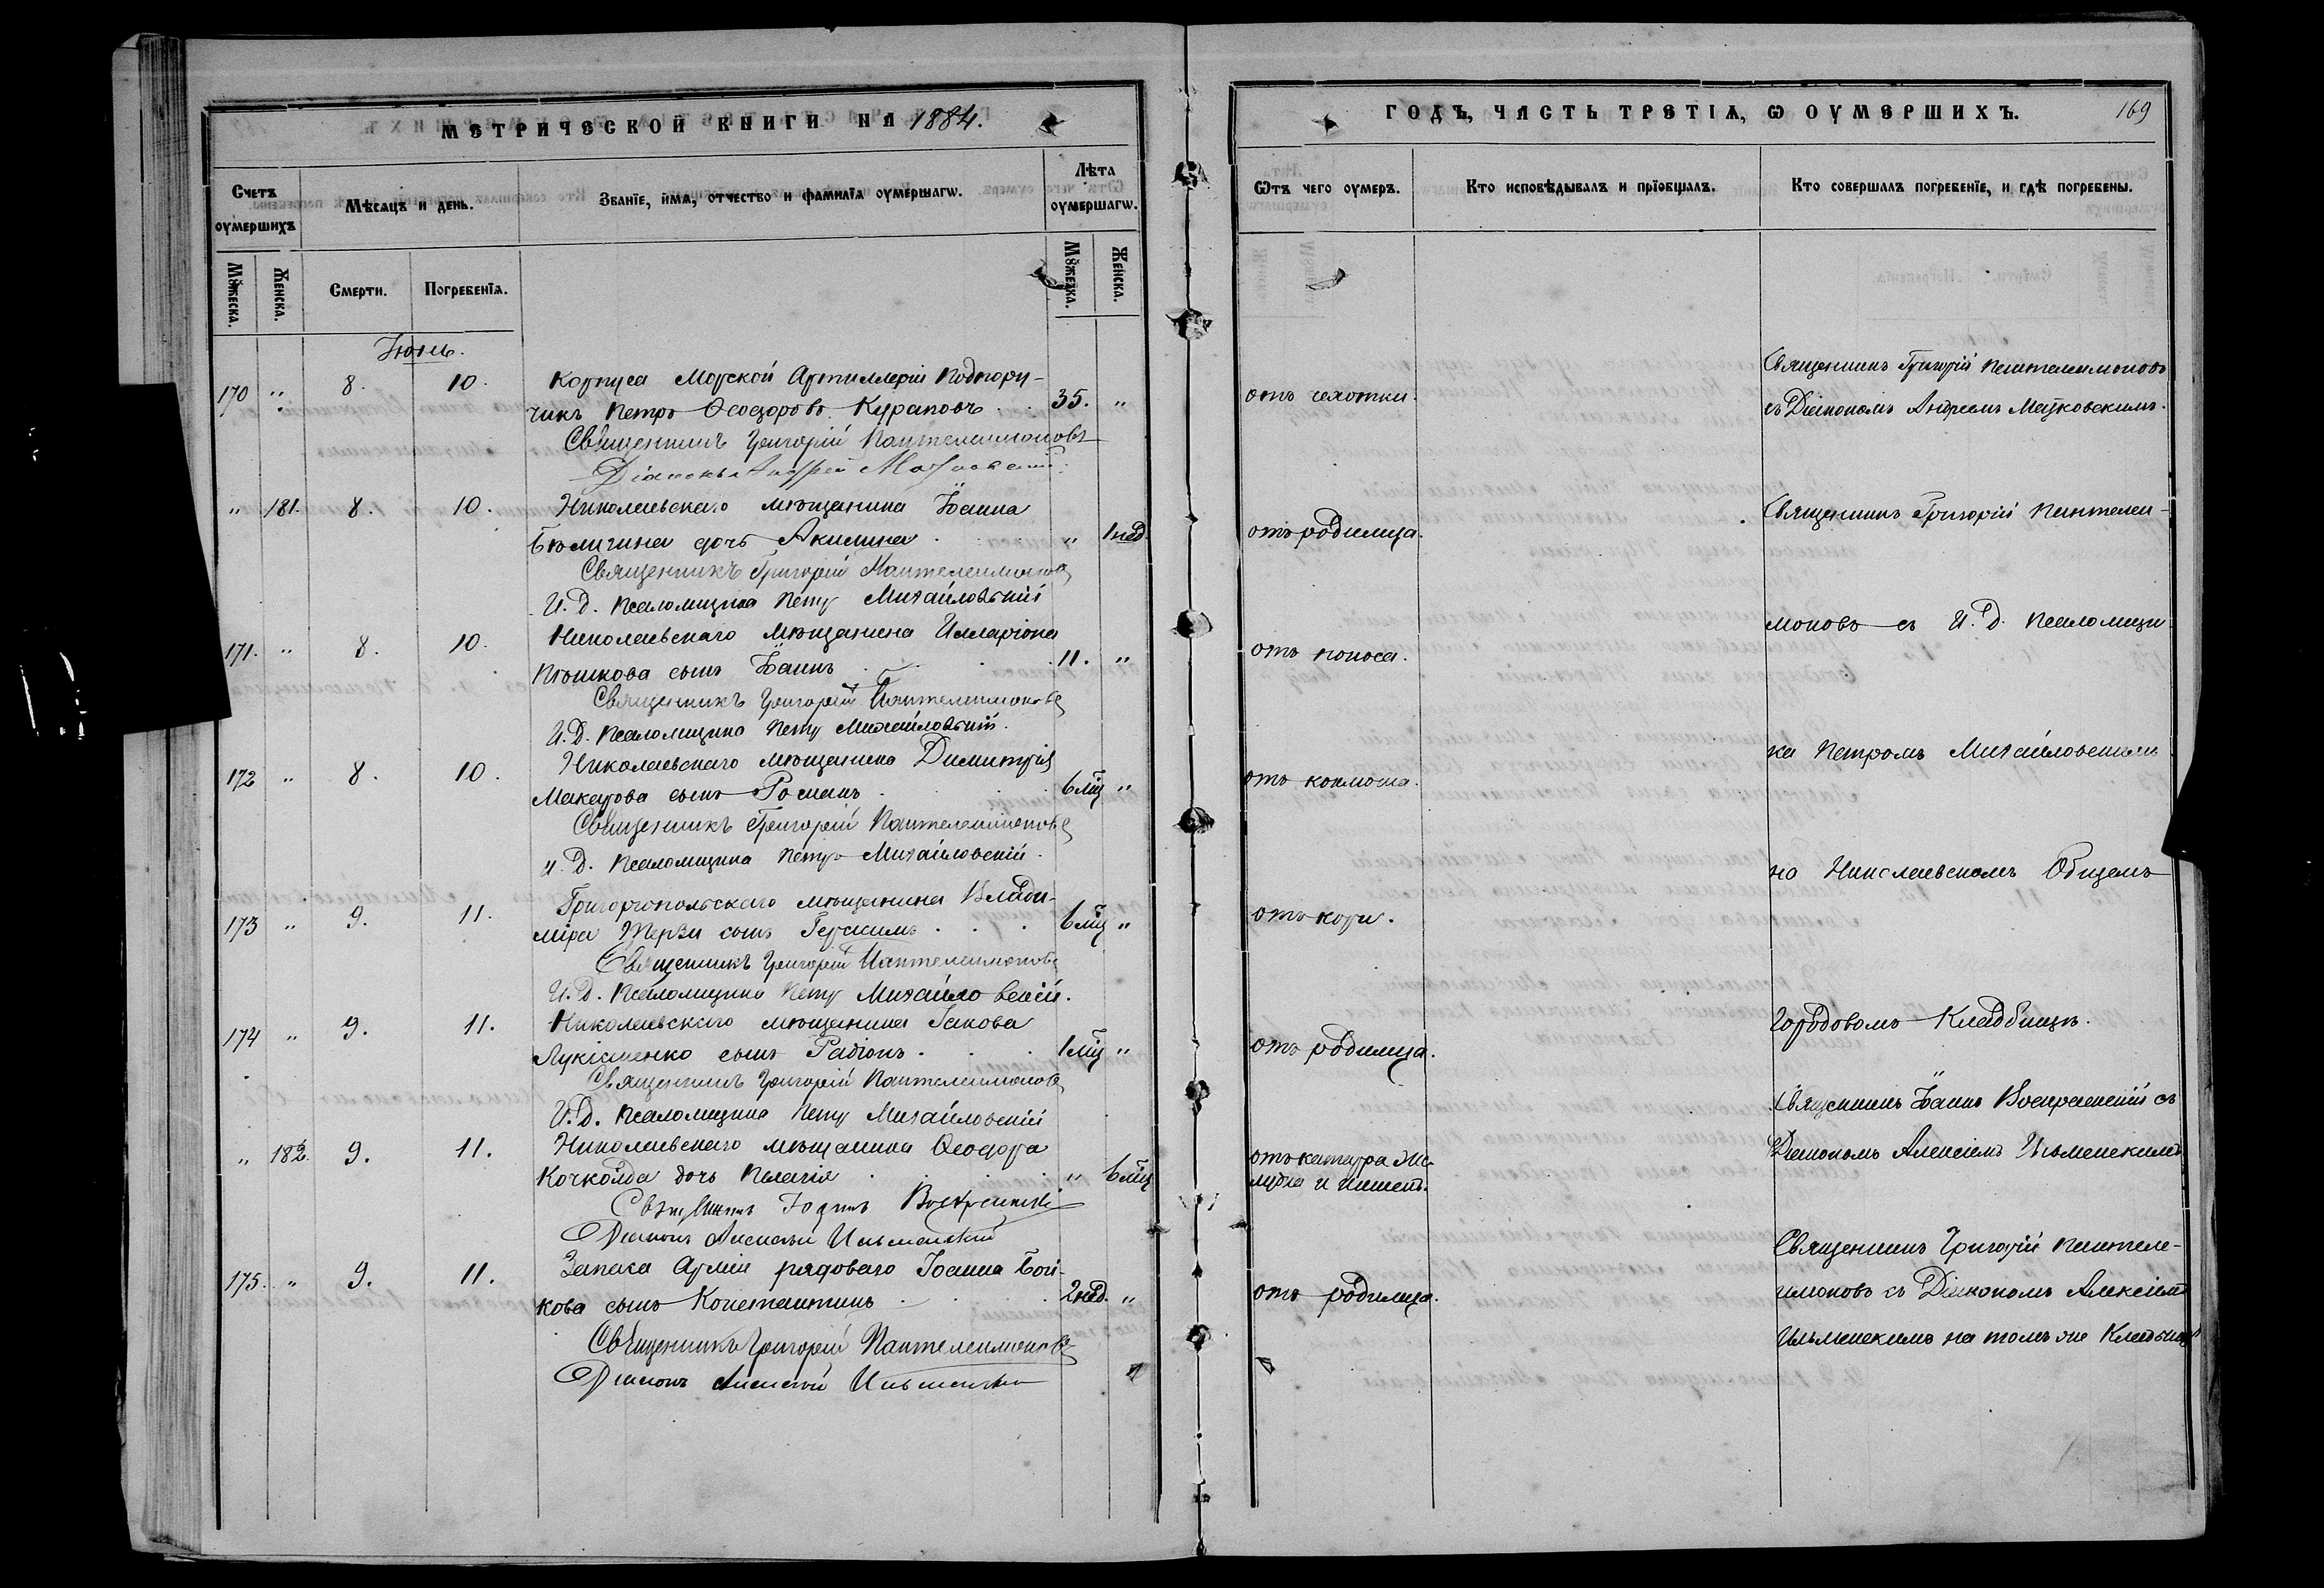 МЕТРИЧЕСКОЙ КНИГИ НА 1884.
Счетъ оумершихъ
Мѣсяцъ и день.
Званїе, имя, отчество и фамилїя оумершагѡ.
Лѣта оумершагѡ.
Мꙋжеска.
Женска.
Смерти.
Погребенїя.
Мꙋжеска.
Женска.
Іюнь.
170 " 8. 10. Корпуса Морской Артиллеріи Подпору-
чикъ Петръ Ѳеодоровъ Кураповъ . . 35. "
Священникъ Григорій Пантелеимоновъ
Діаконъ Андрей
" 181. 8. 10. Николаевскаго мѣщанина Іоанна
дочь Акилина . " 1 нед.
Священникъ Григорій Пантелеимоновъ
И. Д. Псаломщика Петръ Михайловскій
171. " 8. 10. Николаевскаго мѣщанина Илларіона
Пѣшкова сынъ Іоаннъ . . . 11. "
Священникъ Григорій Пантелеимоновъ
И. Д. Псаломщика Петръ Михайловскій.
172 " 8. 10. Николаевскаго мѣщанина Димитрія
Макарова сынъ Романъ . . . 6 мц "
Священникъ Григорій Пантелеимоновъ
И. Д. Псаломщика Петръ Михайловскій.
173 " 9. 11. Григоріопольскаго мѣщанина Влади-
міра сынъ Герасимъ . . . 6 мц "
Священникъ Григорій Пантелеимоновъ
И. Д. Псаломщика Петръ Михайловскій.
174 " 9. 11. Николаевскаго мѣщанина Іакова
Лукіяненко сынъ Радіонъ . . . 1 мц "
Священникъ Григорій Пантелеимоновъ
И. Д. Псаломщика Петръ Михайловскій
" 182. 9. 11. Николаевскаго мѣщанина Ѳеодора
дочь Пелагія . . " 6 мц
Священникъ Іоаннъ Воскресенскій
Діаконъ Алексѣй Ильменскій
175. " 9. 11. Запаса Арміи рядоваго Іоанна Бой-
кова сынъ Константинъ . . . 2 нед. "
Священникъ Григорій Пантелеимоновъ
Діаконъ Алексѣй Ильменскій
ГОДЪ, ЧАСТЬ ТРЕТІЯ, Ѡ ОУМЕРШИХЪ.
169
Ѿтъ чего оумеръ.
Кто исповѣдывалъ и прїобщалъ.
Кто совершалъ погребенїе, и гдѣ погребены.
отъ чахотки.
Священникъ Григорій Пантелеимоновъ
съ Діакономъ Андреемъ
отъ родимца.
Священникъ Григорій Пантелеи-
моновъ съ И. Д. Псаломщи-
отъ поноса.
ка Петромъ Михайловскимъ
отъ коклюша.
на Николаевскомъ Общемъ
отъ кори.
Городовомъ Кладбищѣ.
отъ родимца.
Священникъ Іоаннъ Воскресенскій съ
Діакономъ Алексіемъ Ильменскимъ
отъ катара же-
лудка и кишекъ.
Священникъ Григорій Пантеле-
имоновъ съ Діакономъ Алексіемъ
отъ родимца.
Ильменскимъ на томъ же Кладбищѣ